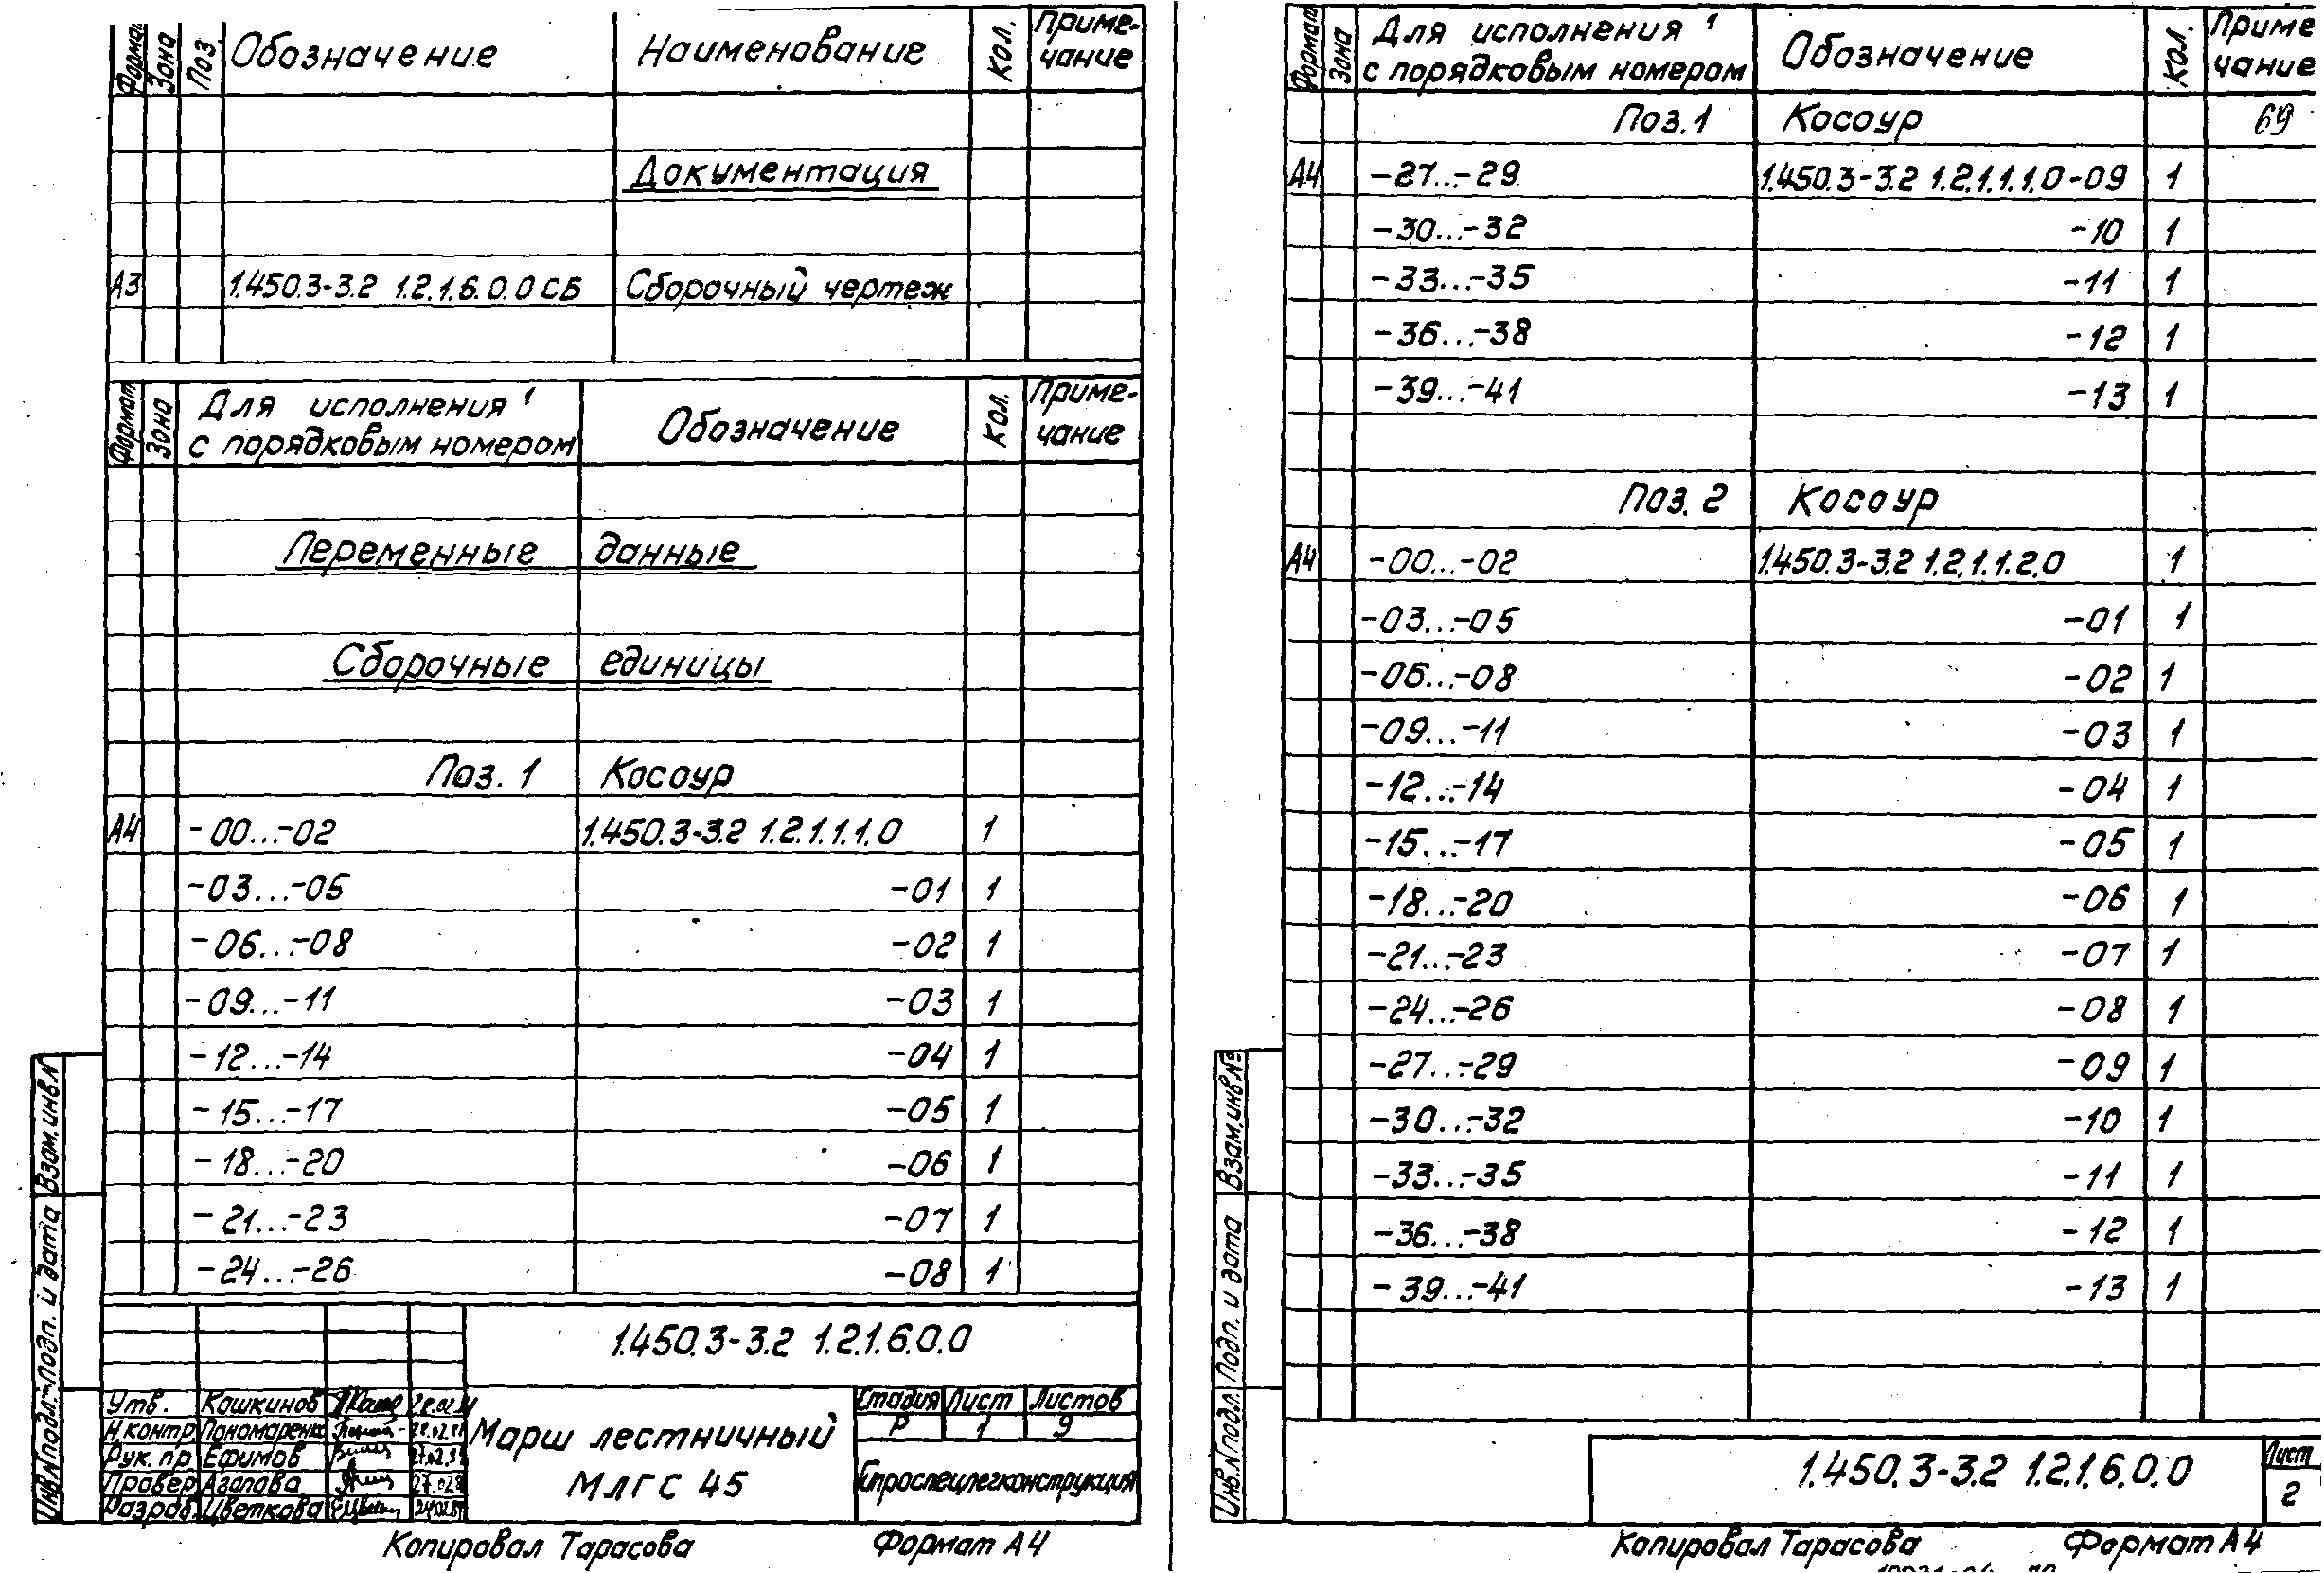 Формат Зона Поз. Обозначение Наименование Кол. Приме-
чание
Документация
А3 1.450.3-3.2 1.2.1.6.0.0 СБ Сборочный чертеж
Формат Зона Для исполнения
с порядковым номером Обозначение Кол. Приме-
чание
Переменные данные
Сборочные единицы
Поз. 1 Косоур
А4 -00...-02 1.450.3-3.2 1.2.1.1.1.0 1
-03...-05 -01 1
-06...-08 -02 1
-09...-11 -03 1
-12...-14 -04 1
-15...-17 -05 1
-18...-20 -06 1
-21...-23 -07 1
-24...-26 -08 1
Взам.инв.№
Подп. и дата
Инв.№подл.
1.450.3-3.2 1.2.1.6.0.0
Утв. Кашкинов
Н.контр Пономаренко
Рук.пр Ефимов
Провер Агапова
Разраб. Цветкова
Марш лестничный
МЛГС 45
Стадия Лист Листов
Р 1 9
Гипроспецлегконструкция
Копировал Тарасова Формат А4
Формат Зона Для исполнения
с порядковым номером Обозначение Кол. Приме
чание
Поз.1 Косоур 69
А4 -27...-29 1.450.3-3.2 1.2.1.1.1.0-09 1
-30...-32 -10 1
-33...-35 -11 1
-36...-38 -12 1
-39...-41 -13 1
Поз. 2 Косоур
А4 -00...-02 1.450.3-3.2 1.2.1.1.2.0 1
-03...-05 -01 1
-06...-08 -02 1
-09...-11 -03 1
-12...-14 -04 1
-15...-17 -05 1
-18...-20 -06 1
-21...-23 -07 1
-24...-26 -08 1
-27...-29 -09 1
-30...-32 -10 1
-33...-35 -11 1
-36...-38 -12 1
-39...-41 -13 1
Взам.инв.№
Подп. и дата
Инв.№подл.
1.450.3-3.2 1.2.1.6.0.0
Лист
2
Копировал Тарасова Формат А4